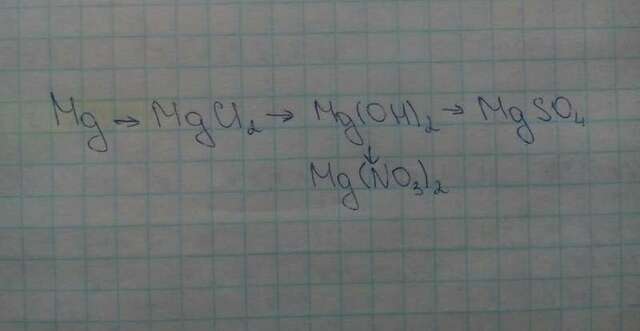 Mg → MgCl₂ → Mg(OH)₂ → MgSO₄
↓
Mg(NO₃)₂